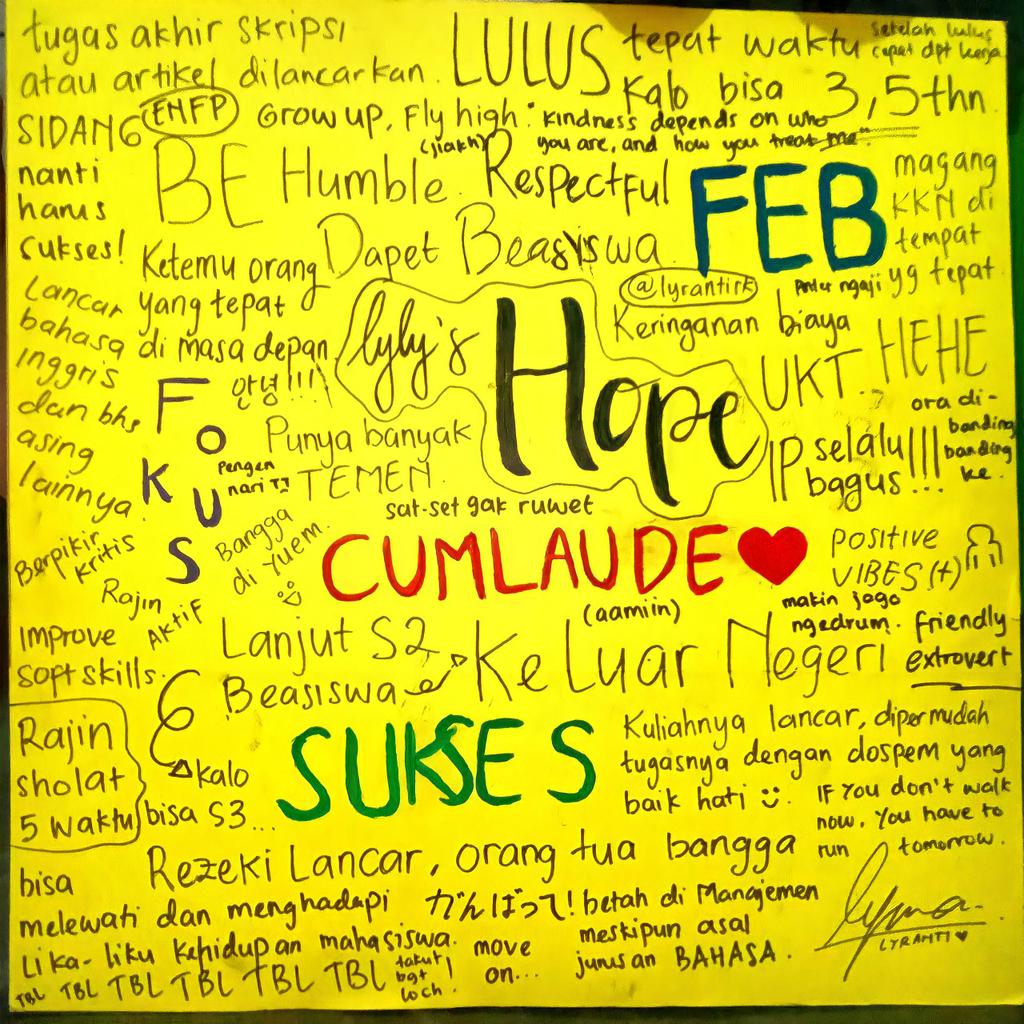 tugas akhir skripsi
atau artikel dilancarkan.
LULUS tepat waktu
Kalo bisa 3,5thn.
setelah lulus
cepat dpt kerja
SIDANG
nanti
harus
sukses!
ENFP
Grow up, Fly high :
(jiakh)
kindness depends on who
you are, and how you treat me.
BE Humble. Respectful
FEB
magang
KKN di
tempat
yg tepat
Ketemu orang
yang tepat
di masa depan
Dapet Beasiswa
@lyrantirk
Pinter ngaji
Keringanan biaya
UKT. HEHE
Lancar
bahasa
inggris
dan bhs
asing
lainnya.
안녕!!!
lyly's
Hope
FOKUS
Punya banyak
TEMEN.
Pengen
nari TT
sat-set gak ruwet
IP selalu
bagus!!!...
ora di-
banding
banding
ke.
Berpikir
kritis
Rajin
AKTIF
Bangga
di Yuem.
CUMLAUDE ❤
(aamiin)
POSITIVE
VIBES (+)
makin jago
ngedrum.
friendly
extrovert
Improve
soft skills.
Lanjut S2
Beasiswa
Ke Luar Negeri
kalo
bisa S3...
Rajin
sholat
5 waktu
SUKSES
Kuliahnya lancar, dipermudah
tugasnya dengan dospem yang
baik hati
IF You don't walk
now. You have to
run tomorrow.
Rezeki Lancar, orang tua bangga
bisa
melewati dan menghadapi
Lika-liku kehidupan mahasiswa.
TBL TBL TBL TBL TBL TBL
takut
bgt
loch!
がんばって!
move
on...
betah di Manajemen
meskipun asal
jurusan BAHASA.
LYRANTI♥